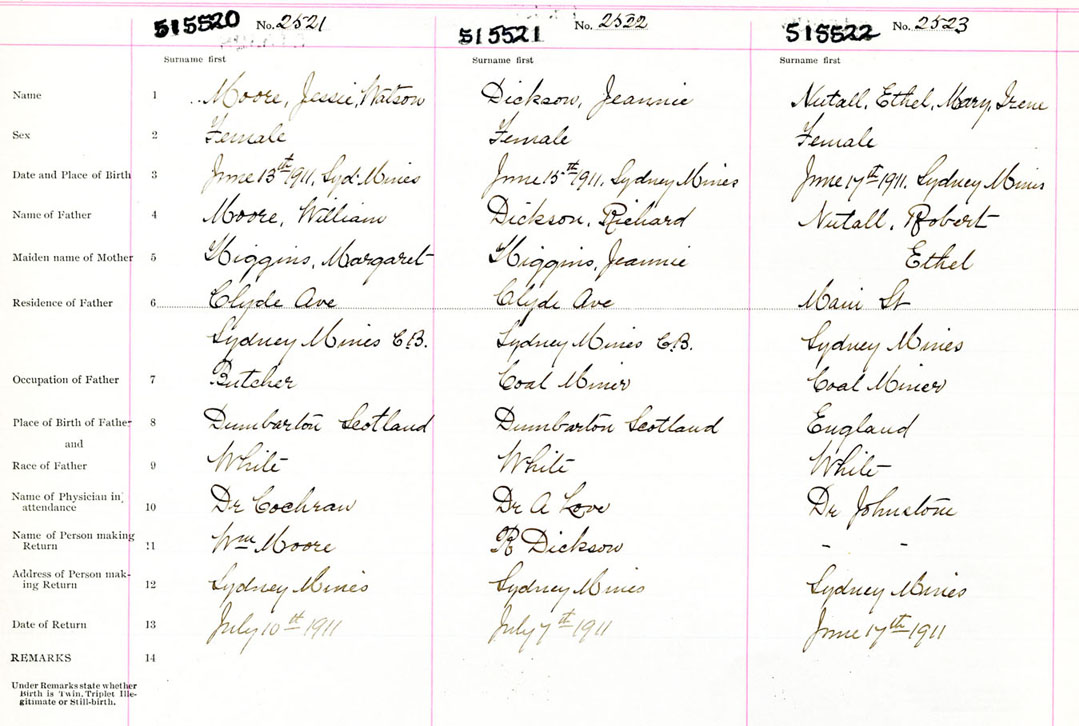 515520 No. 2521 515521 No. 2522 515522 No. 2523
Surname first Surname first Surname first
Name 1 Moore, Jessie, Watson Dickson, Jeannie Nutall, Ethel, Mary, Irene
Sex 2 Female Female Female
Date and Place of Birth 3 June 13th 1911, Syd. Mines June 15th 1911, Sydney Mines June 17th 1911, Sydney Mines
Name of Father 4 Moore, William Dickson, Richard Nutall, Robert
Maiden name of Mother 5 Higgins, Margaret Higgins, Jeannie Ethel
Residence of Father 6 Clyde Ave Clyde Ave Main St
Sydney Mines C.B. Sydney Mines C.B. Sydney Mines
Occupation of Father 7 Butcher Coal Miner Coal Miner
Place of Birth of Father 8 Dumbarton Scotland Dumbarton Scotland England
and
Race of Father 9 White White White
Name of Physician in
attendance 10 Dr Cochran Dr A Love Dr Johnstone
Name of Person making
Return 11 Wm Moore R Dickson - -
Address of Person mak-
ing Return 12 Sydney Mines Sydney Mines Sydney Mines
Date of Return 13 July 10th 1911 July 7th 1911 June 17th 1911
REMARKS 14
Under Remarks state whether
Birth is Twin, Triplet Ille-
gitimate or Still-birth.